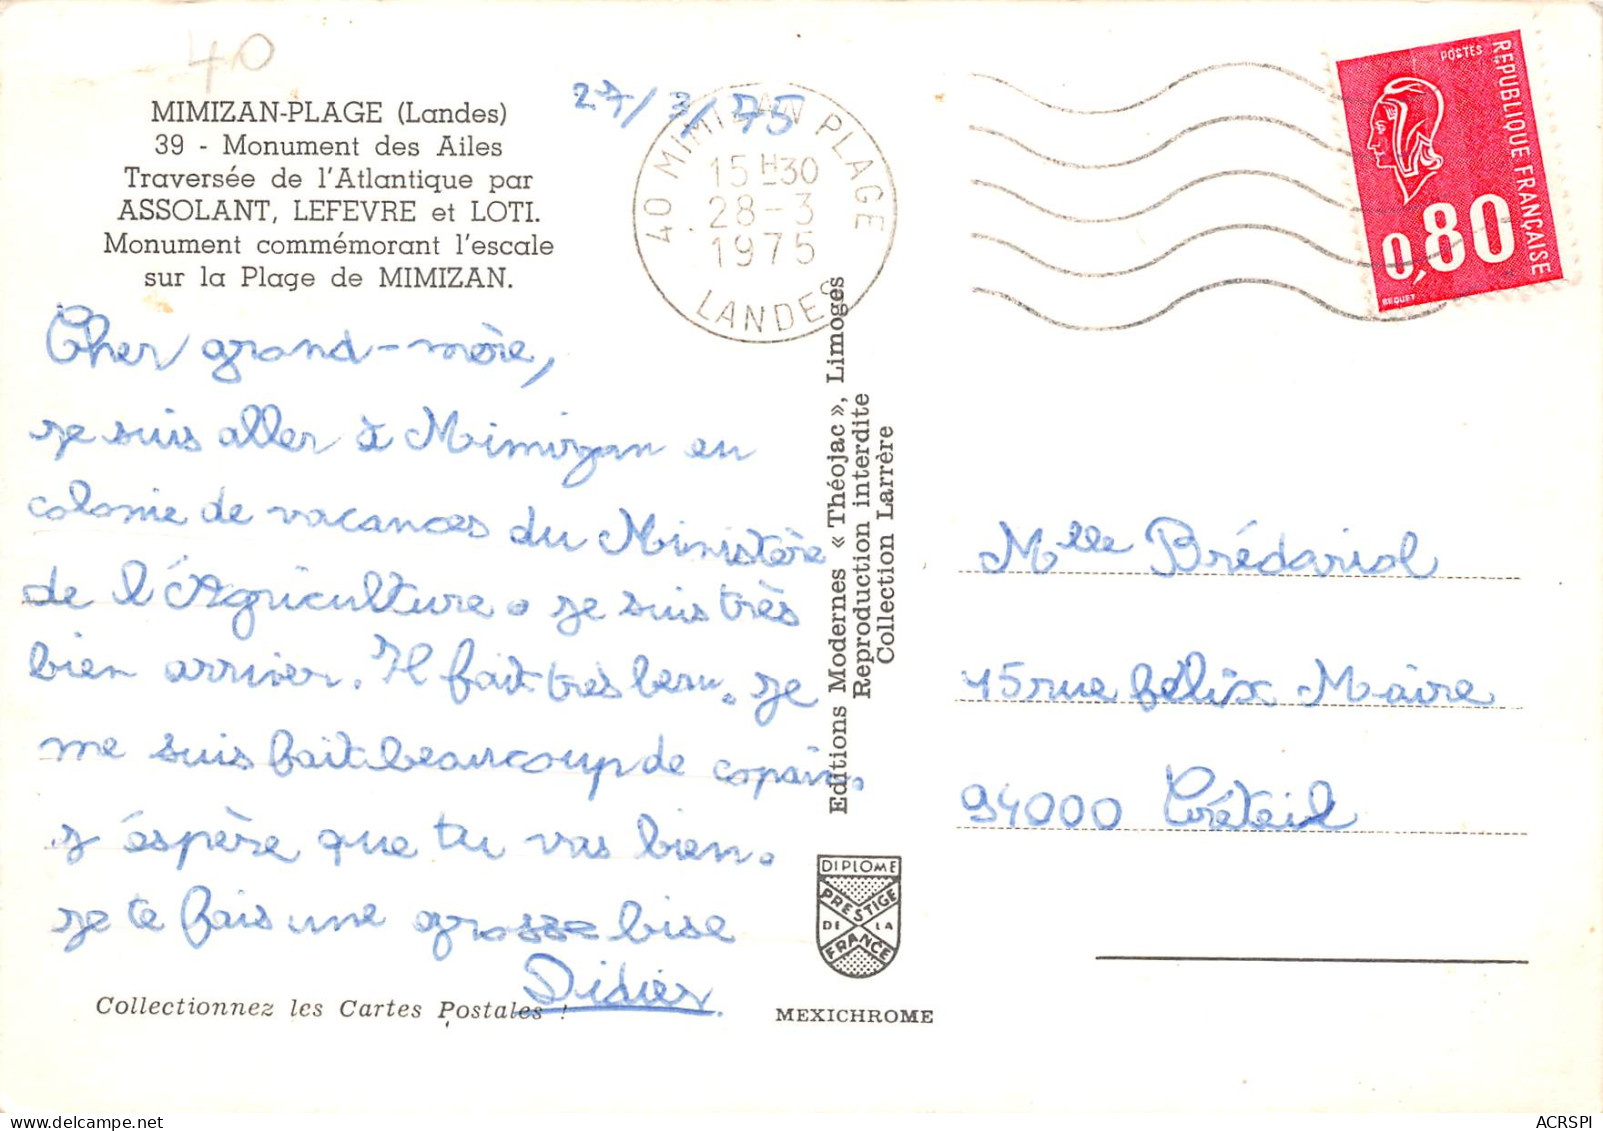 40
MIMIZAN-PLAGE (Landes)
39 - Monument des Ailes
Traversée de l'Atlantique par
ASSOLANT, LEFEVRE et LOTI.
Monument commémorant l'escale
sur la Plage de MIMIZAN.
27/3/75
Cher grand-mère,
je suis aller à Mimizan en
colonie de vacances du Ministère
de l'Agriculture. Je suis très
bien arriver. Il fait très beau. Je
me suis fait beaucoup de copain.
J'éspère que tu vas bien.
Je te fais une grosse bise
Didier
Collectionnez les Cartes Postales !
40 MIMIZAN PLAGE
15H30
28-3
1975
LANDES
Editions Modernes « Théojac », Limoges
Reproduction interdite
Collection Larrère
DIPLOME
PRESTIGE
DE LA
FRANCE
MEXICHROME
POSTES
REPUBLIQUE FRANÇAISE
0,80
BEQUET
Mlle Brédariol
15 rue félix Maire
94000 Créteil
ACRSPI